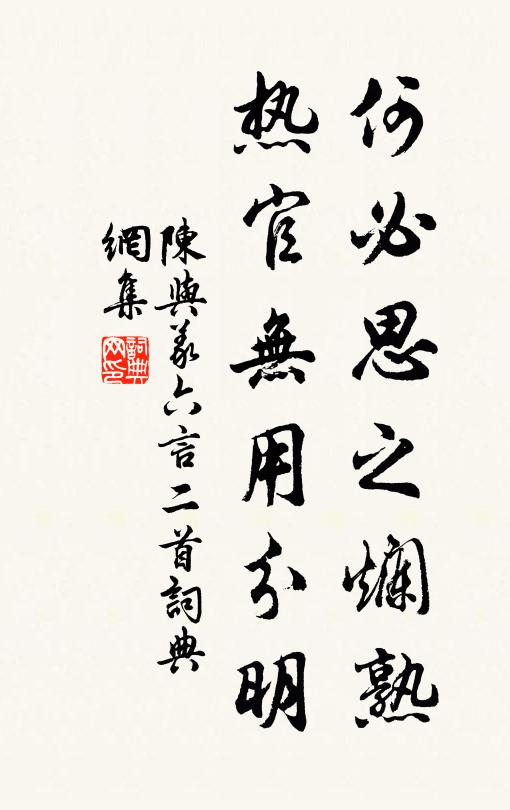 何必思之爛熟
热官無用分明
陳與義六言二首詞典
網集
詞典
网印